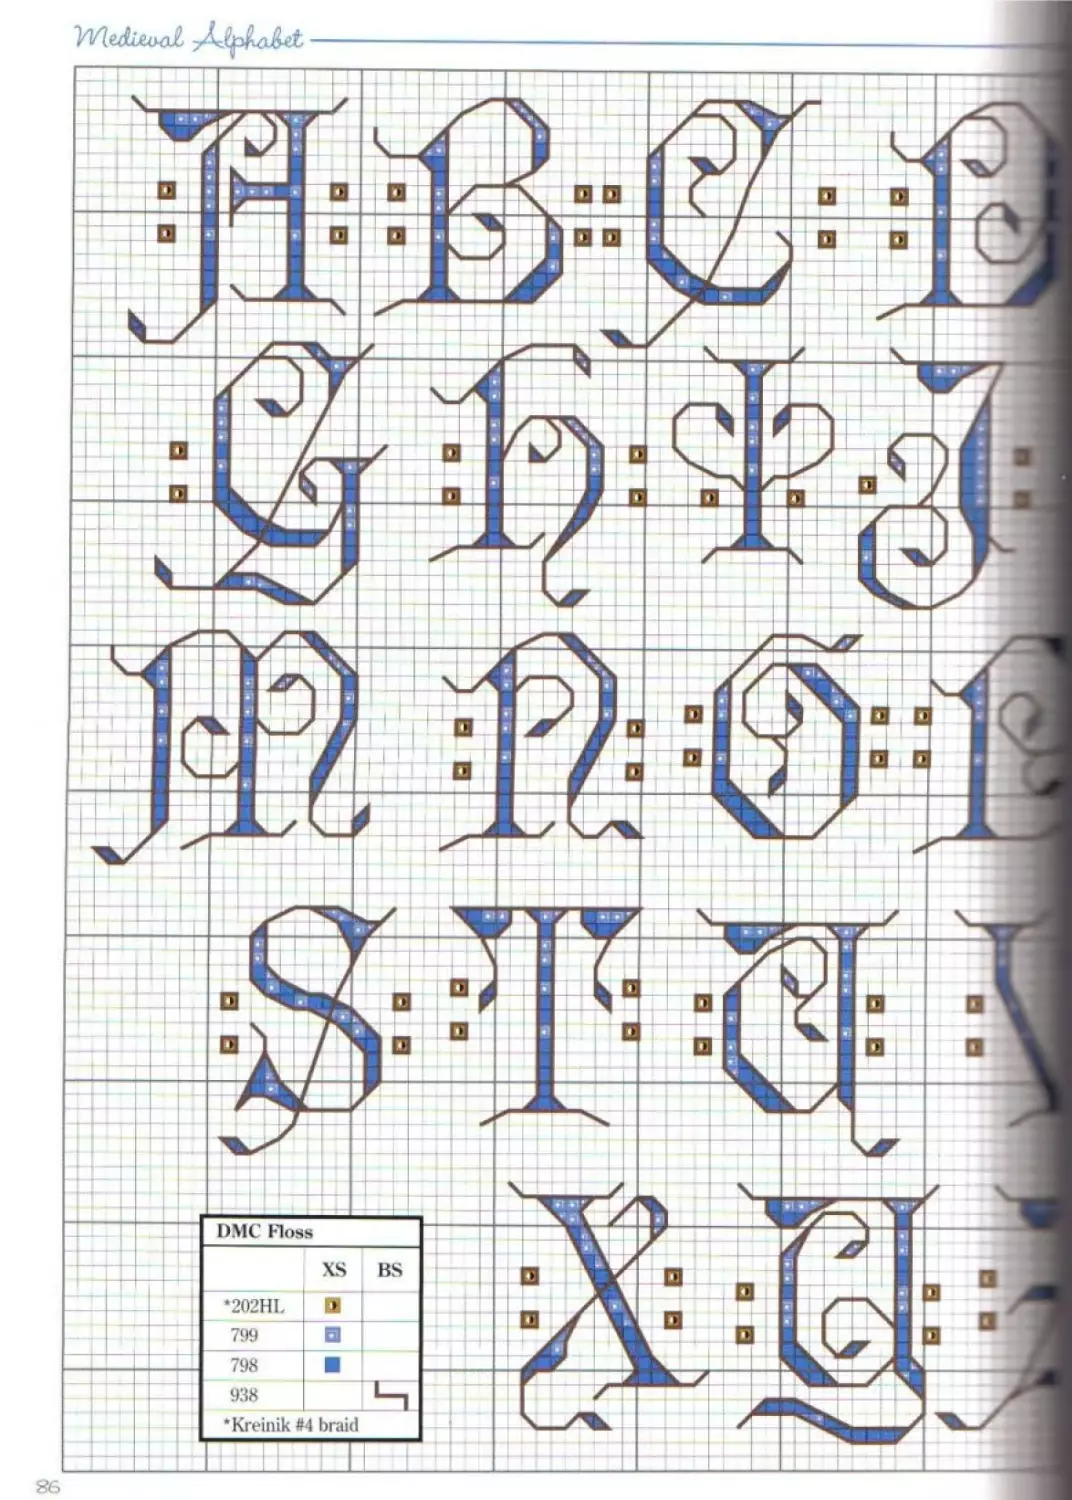 Medieval Alphabet
A B C D
G H I J
M N O P
S T U V
X Y
DMC Floss
XS BS
*202HL
799
798
938
*Kreinik #4 braid
86